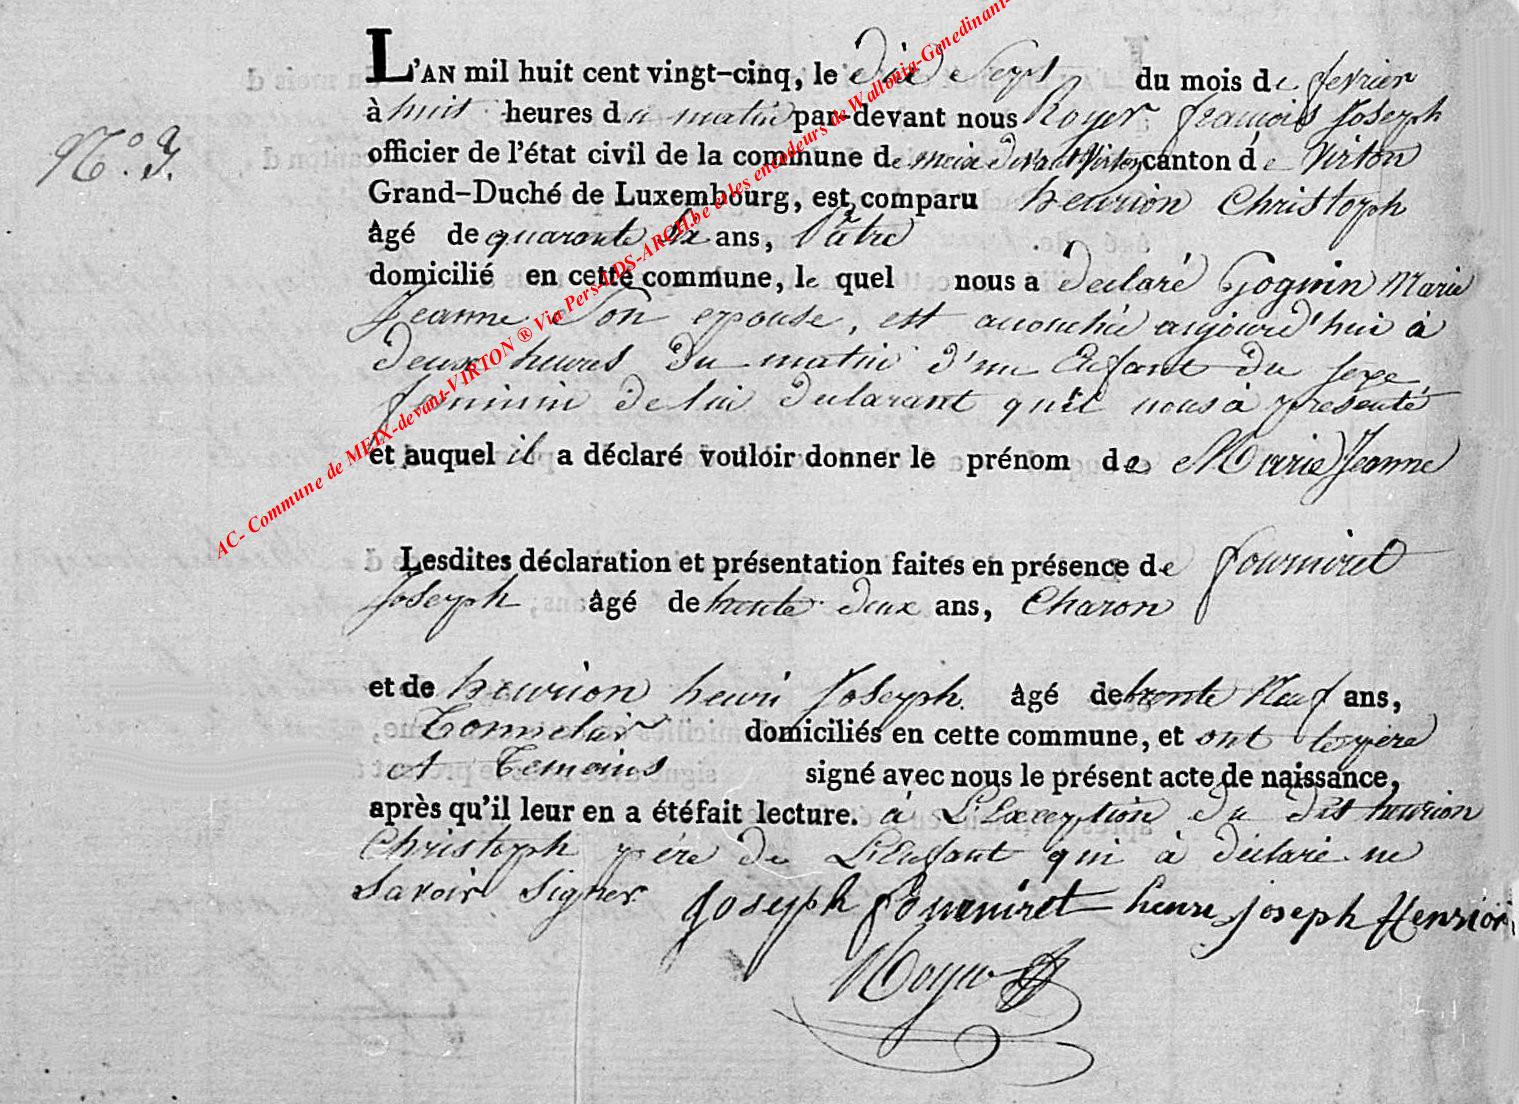 L'AN mil huit cent vingt-cinq, le dix Sept du mois de fevrier
à huit heures du matin par-devant nous Royer françois Joseph
N.o 7.
officier de l'état civil de la commune de meix devant Virton canton de Virton
Grand-Duché de Luxembourg, est comparu henrion Christoph
âgé de quarante ans,
domicilié en cette commune, le quel nous a declaré Goguin Marie
Jeanne Son epouse, est accouchée aujourd'hui à
deux heures du matin d'un Enfant du sexe
feminin de lui declarant qu'il nous à presenté
et auquel il a déclaré vouloir donner le prénom de Marie Jeanne
Lesdites déclaration et présentation faites en présence de fourniret
Joseph âgé de trente deux ans, Charon
et de henrion henri Joseph. âgé de trente Neuf ans,
Tonnelier domiciliés en cette commune, et ont le père
et Temoins signé avec nous le présent acte de naissance,
après qu'il leur en a été fait lecture. à L'Exception du dit henrion
Christoph père de L'Enfant qui à déclaré ne
Savoir Signer.
Joseph fourniret henri joseph Henrion
Royer
AC- Commune de MEIX-devant-VIRTON ® Via Pers-LDS-ARCH.be et les encodeurs de Wallonia-Genedinant-